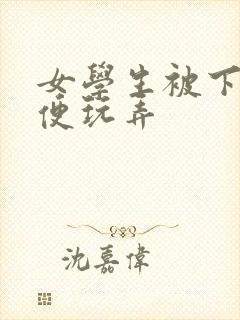 女學生被下
便玩弄
沈嘉偉